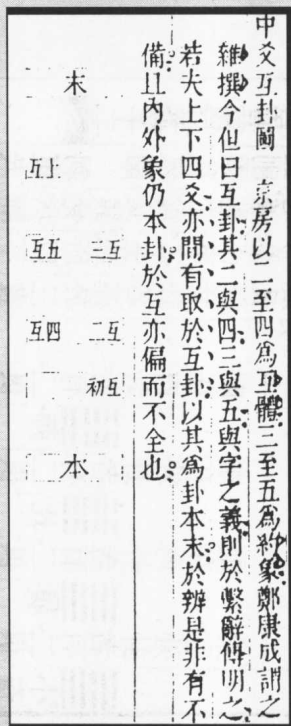 中爻互卦圖　京房以二至四爲互體三至五爲約象鄭康成謂之
雜撰今但曰互卦其二與四三與五與字之義則於繫辭傳明之
若夫上下四爻亦間有取於互卦以其爲卦本末於辨是非有不
備且內外象仍本卦於互亦偏而不全也
末
上互
五互　互三
四互　互二
互初
本